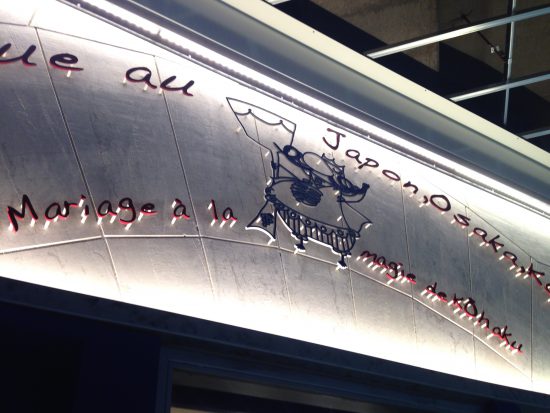 ue au Japon, Osaka, Ko
Mariage à la magie de Kohaku